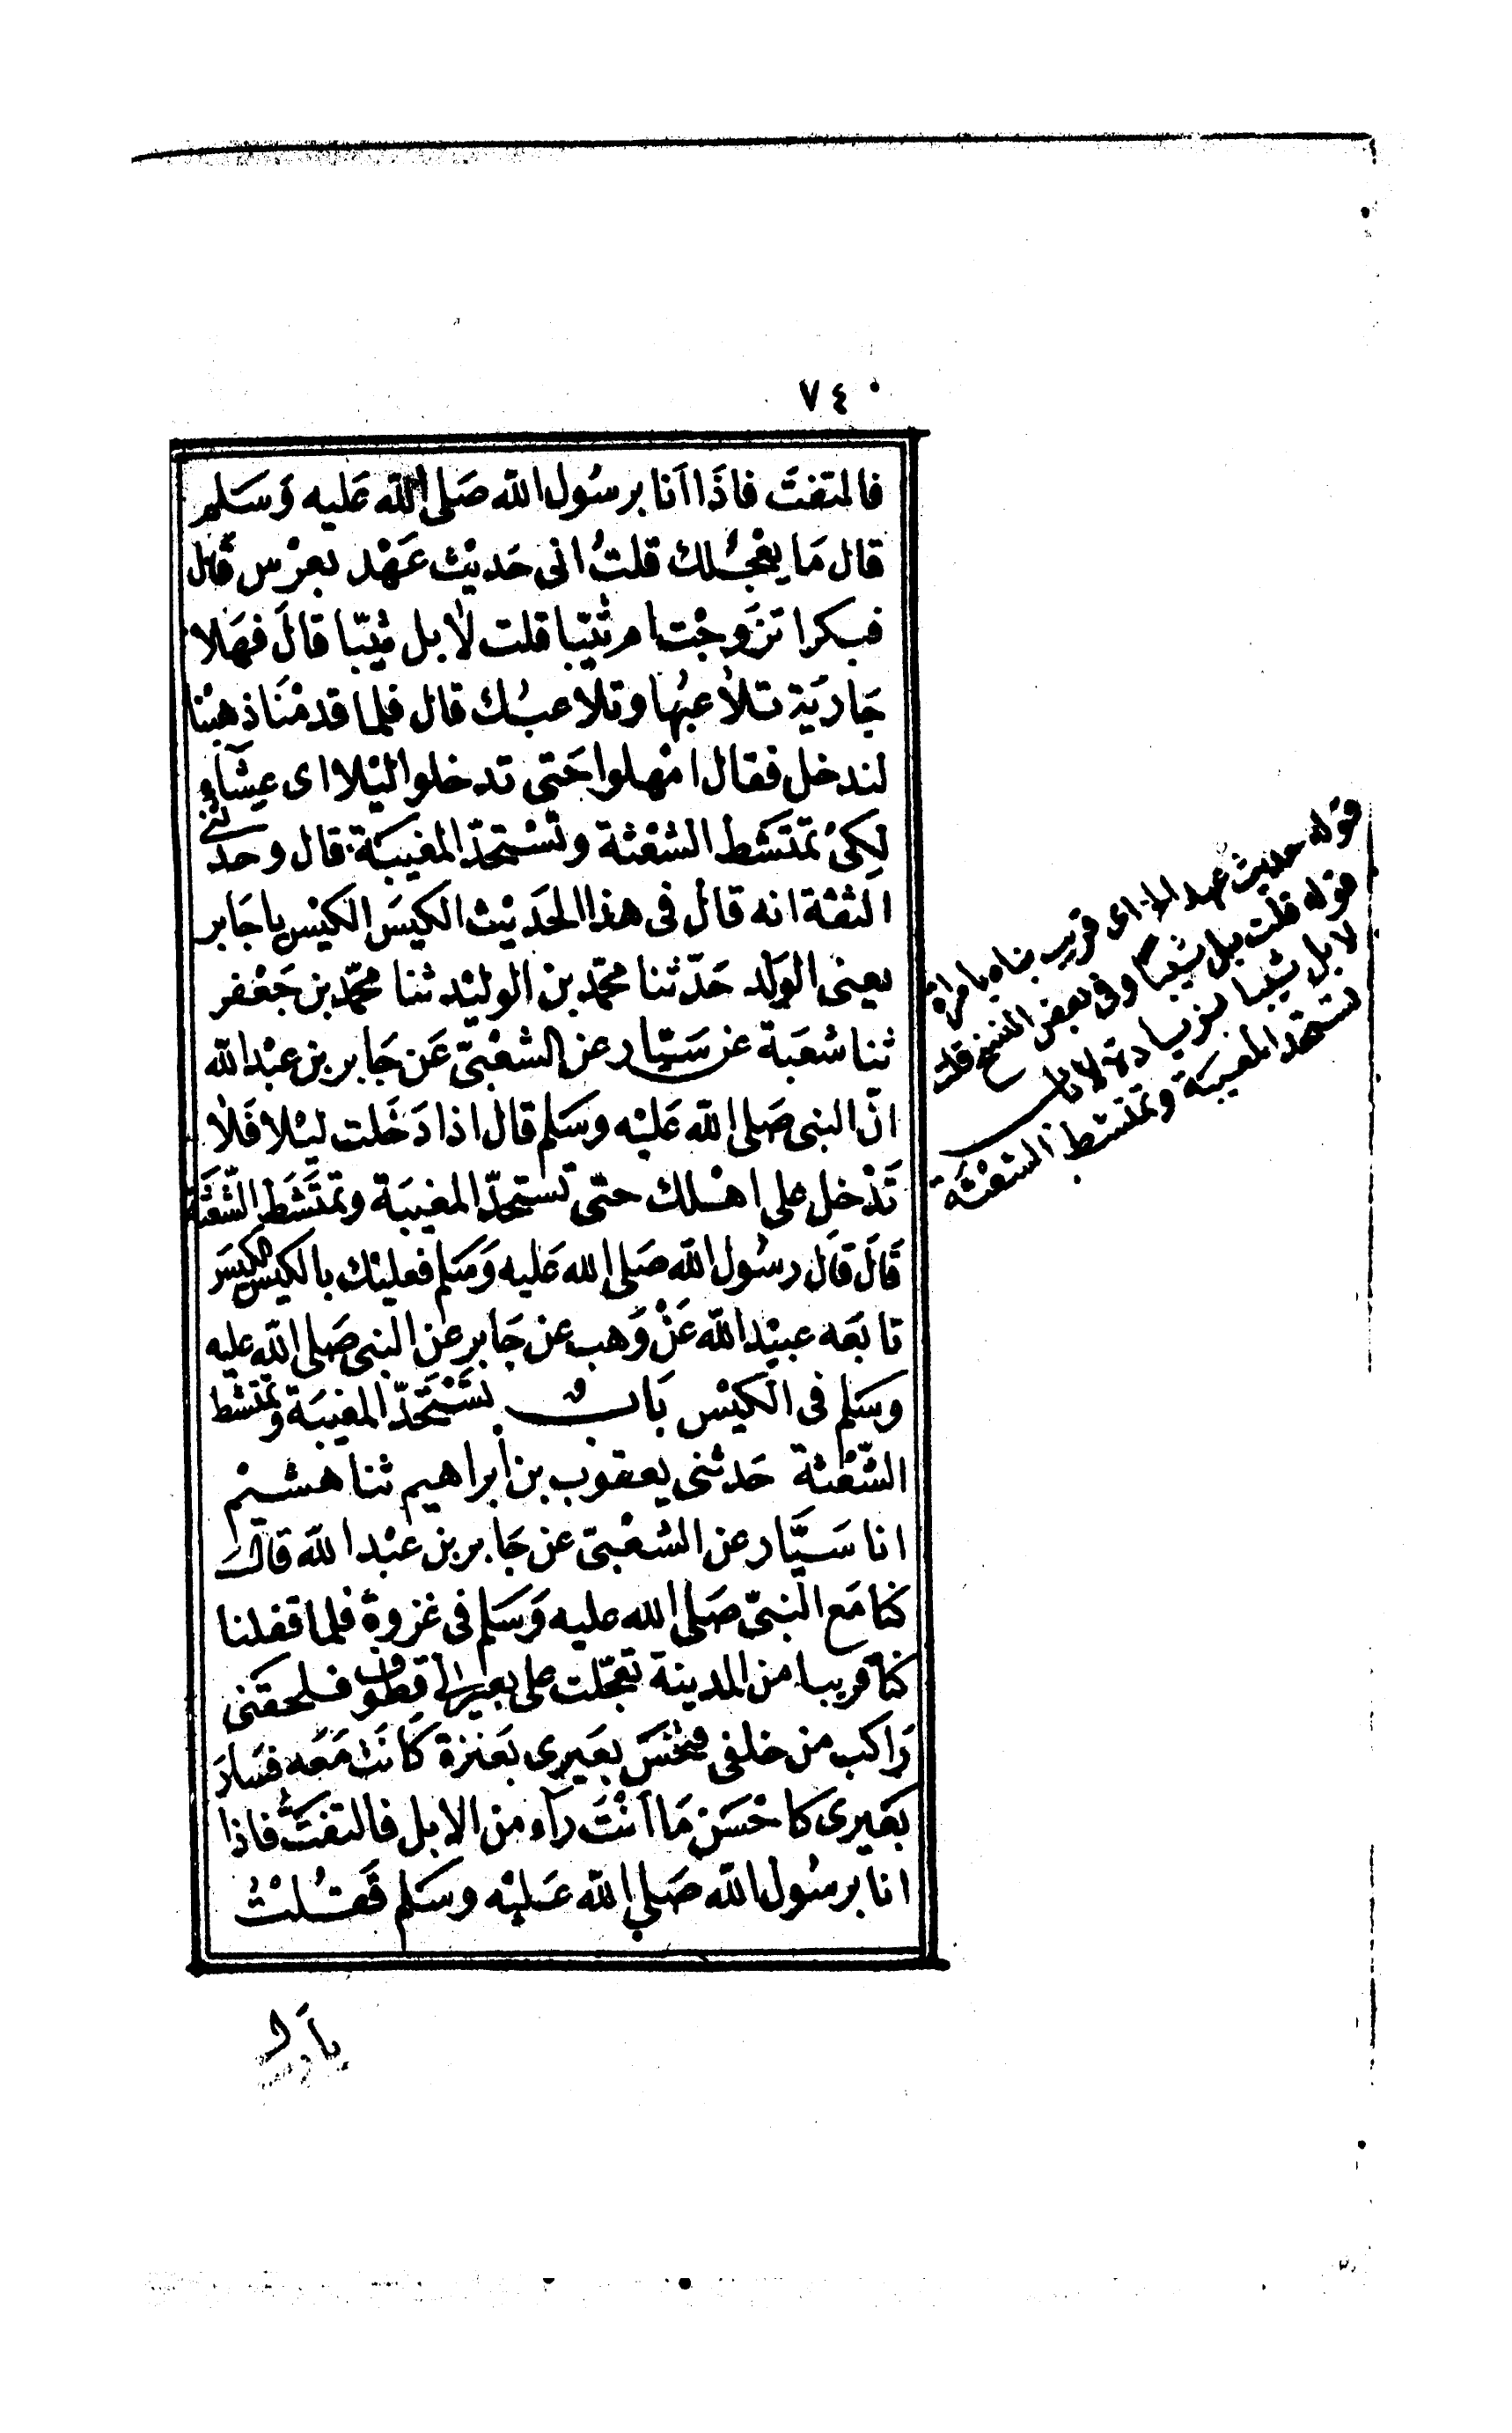 ٧٤٠
فالتفتّ فاذَا اَنا برسُول الله صَلى الله عَليه وَسَلم
قال مَا يعْجُلك قلتُ انى حَديْث عَهْد بعرْس قال
فبكرا تزَوجْت ام ثيّبا قلت لا بل ثيّبا قالَ فهَلا
جَاريَة تلاعبُها وتلاعبُك قال فلما قدمْنَا ذهبْنا
لندخل فقال امْهلوا حَتى تدخلوا ليْلا اى عِشَآء
لِكىْ تمْتَشَط الشعْثة وتسْتحدّ المغيبَة قال وحدثنى
الثقة انه قال فى هذا الحَديْث الكيسَ الكيْسَ يا جَابر
يعنى الوَلد حَدّثنا محمّد بن الوليْد ثنا محمّد بن جَعْفر
ثنا شعَبة عن سَيّار عن الشعْبىّ عَن جَابر بن عبْد الله
انّ النبى صَلى الله عَليْه وسَلم قال اذا دَخَلت ليْلا فَلا
تَدْخل على اهْلك حتّى تستحدّ المغيبَة وتمتَشَط الشّعثَة
قَالَ قَال رسُول الله صَلى الله عَليه وَسَلم فعليْك بالكيس الكيسَ
تابعَه عبيْد الله عَنْ وَهب عن جَابر عن النبى صَلى الله عليه
وسَلم فى الكيْس بَاب تسْتَحدّ المغيبَة وتمتشط
الشّعْثة حَدثنى يعقوب بن ابراهيم ثنا هشيْم
انا سَيَّار عن الشعْبىّ عن جَابر بن عبْد الله قال
كنا مَع النبىّ صَلى الله عليه وَسَلم فى غزوة فلما قفلنا
كنا قريبا من المدينة تعجّلت على بعير لى قطوف فلحقنى
رَاكب من خلفى فنخسَ بعَيرى بعَنزة كَانَتْ مَعَه فسَارَ
بعَيرى كاحْسَن مَا اَنْتَ رَآء من الابل فالتفتُّ فاذا
انا برسُول الله صَلى الله عَليْه وسَلم فَقُلْتُ
يا رسول
قوله حديث عهد الخ اى قريب بناء بامراة
قوله قلت بل ثيبا وفى بعض النسخ قلت
لا بل ثيبا بزيادة لا باب
تستحد المغيبة وتمتشط الشعْثَة